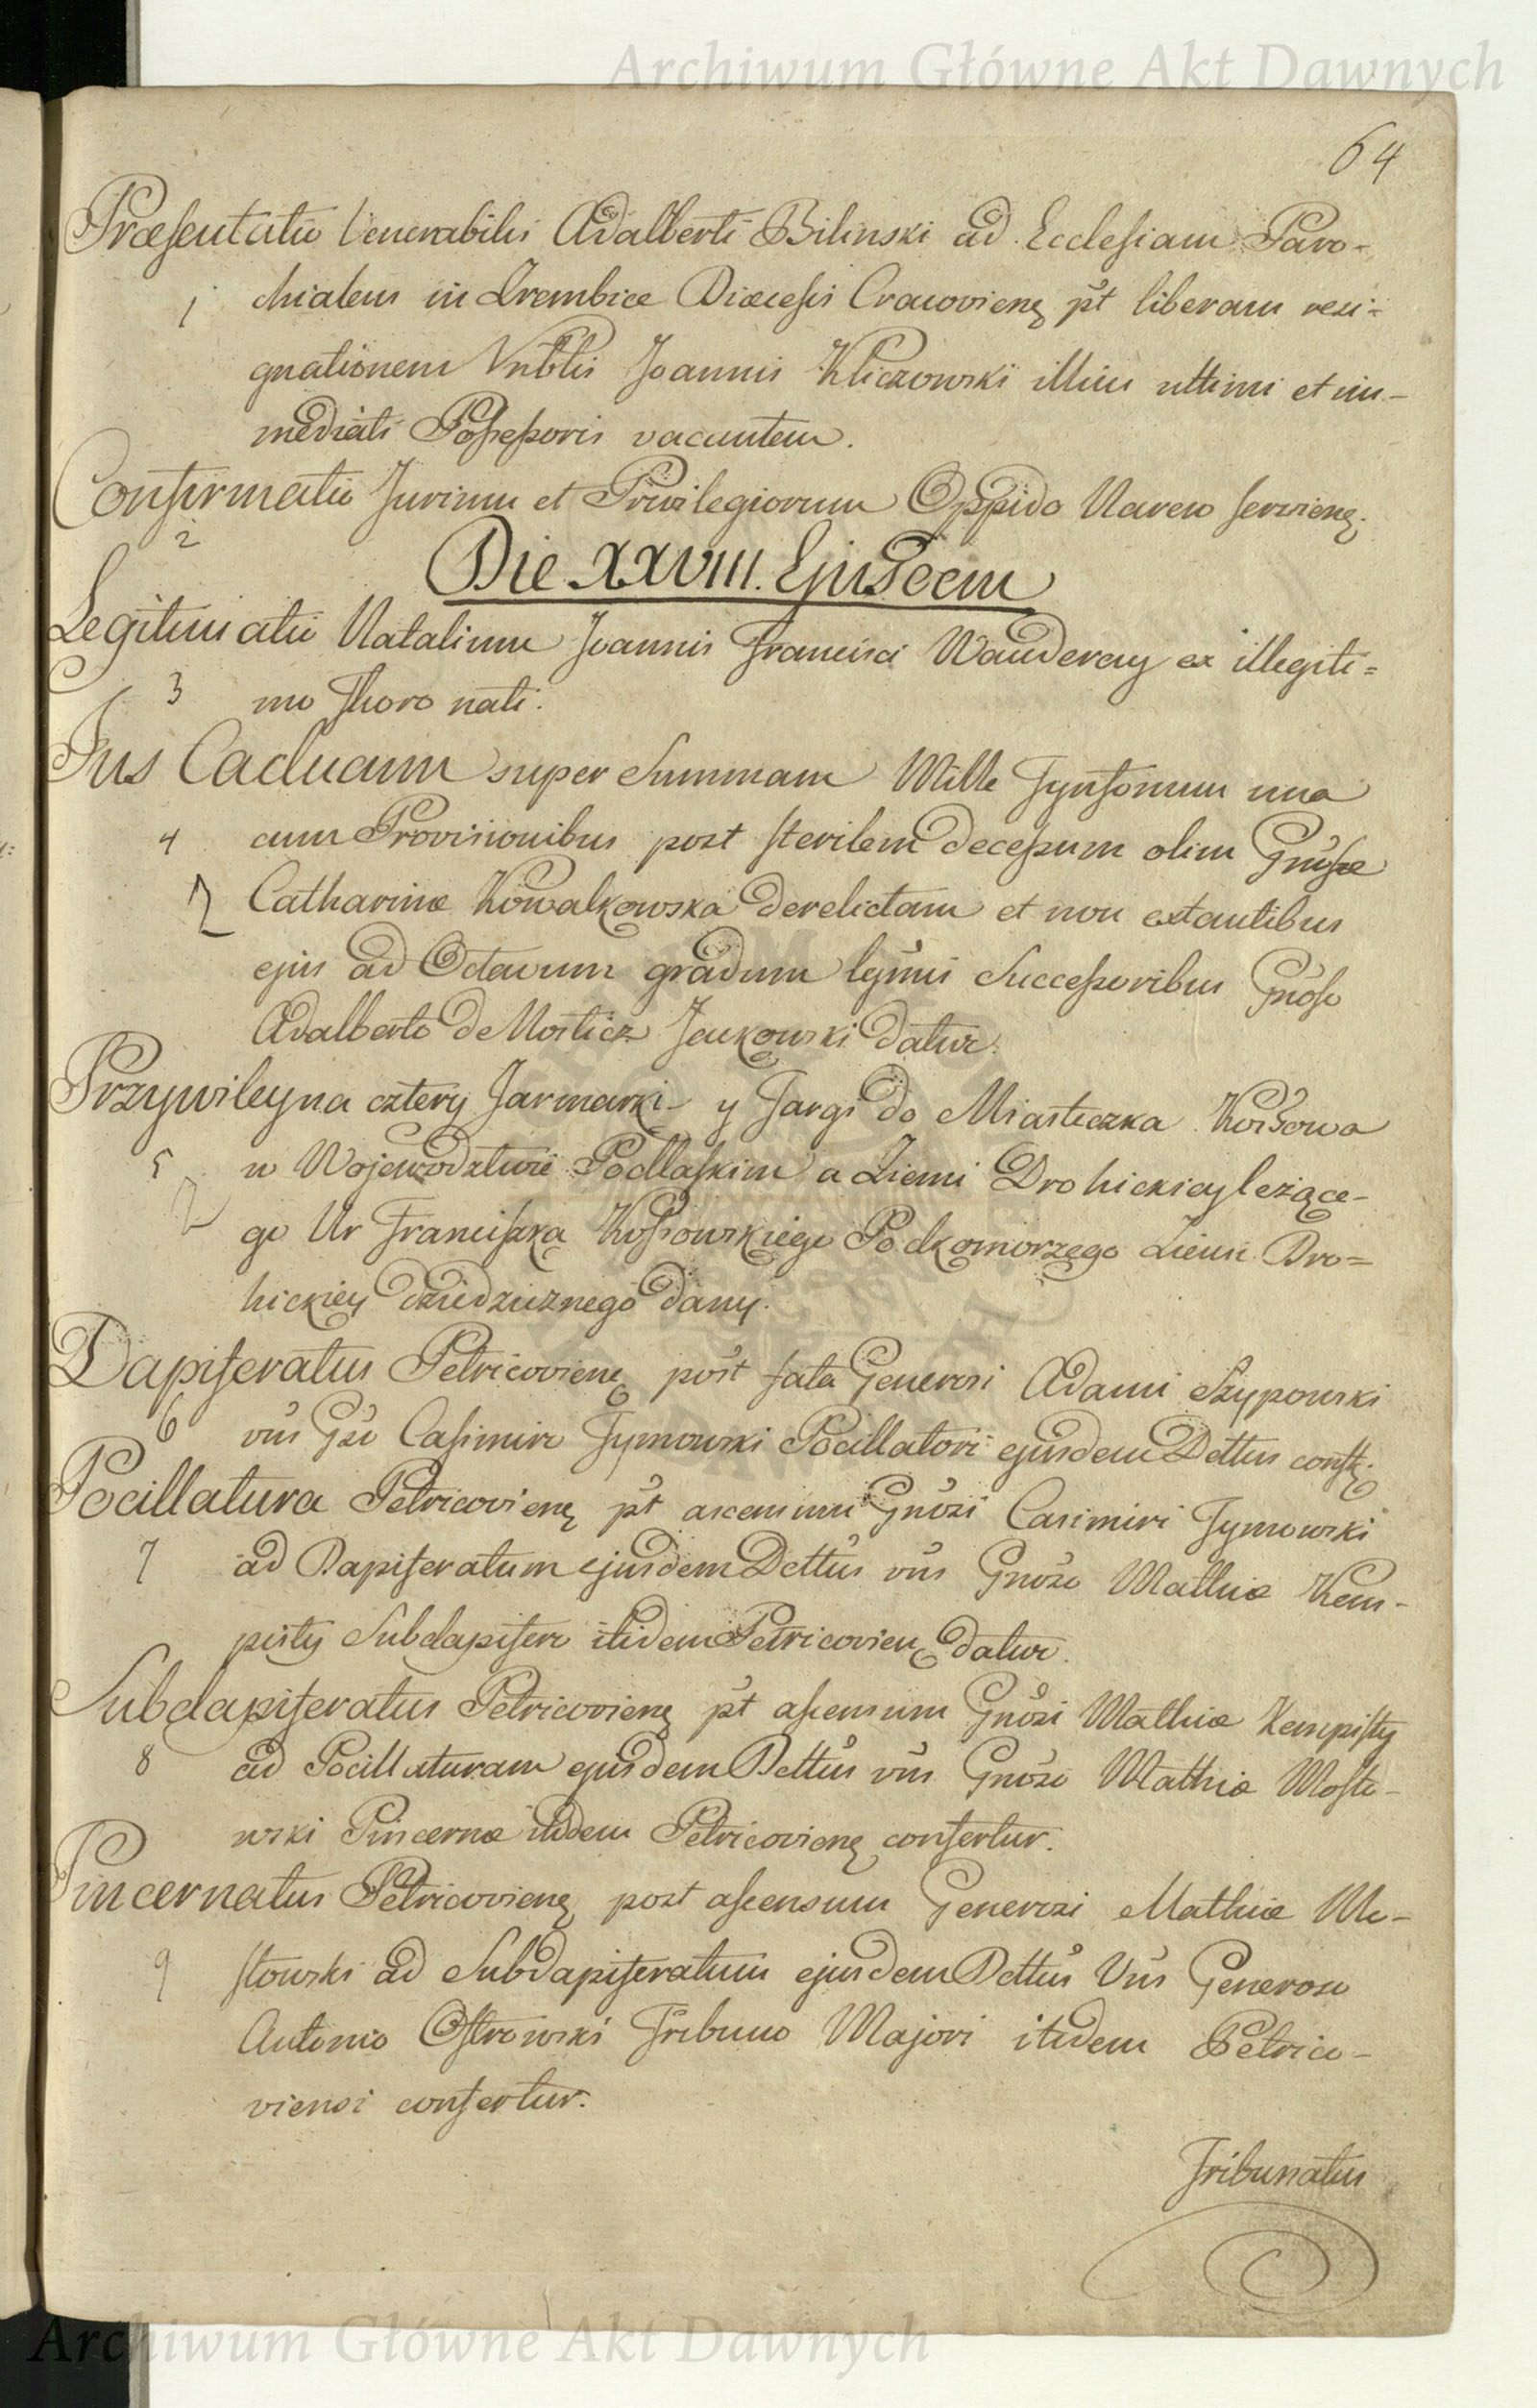 Archiwum Główne Akt Dawnych
64
Præsentatio Venerabilis Adalberti Bilinski ad Ecclesiam Paro-
1 chialem in Drembice Diæcesis Cracovien pt liberam resi-
gnationem Vnblis Joannis Kliczowski illius ultimi et im-
mediati Possessoris vacantem.
Confirmatio Jurium et Privilegiorum Oppido Narew servien.
2
Die XXVIII. Ejusdem
Legitimatio Natalium Joannis Francisci Wanderay ex illegiti=
3 mo Thoro nati.
Jus Caducum super Summam Mille Tynforum una
4 cum Provisionibus post sterilem decessum olim Gnosæ
Catharinæ Kowalkowska derelictam et non extantibus
ejus ad Octavum gradum lgmis Successoribus Gnoso
Adalberto de Mosticz Jenkowski datur.
Przywiley na cztery Jarmarki y Targi do Miasteczka Kossowa
5 w Wojewodztwie Podlaskim a Ziemi Drohickiey leżące-
go Ur Franciszka Kossowskiego Podkomorzego Ziemi Dro=
hickiey dziedzicznego dany.
Dapiferatus Petricovien post fata Generosi Adami Szypowski
6 vus Gso Casimiro Tymowski Pocillatori ejusdem Dettus conft.
Pocillatura Petricovien pt ascensum Gnosi Casimiri Tymowski
7 ad Dapiferatum ejusdem Dettus vus Gnoso Mathiæ Kem-
pisty Subdapifero itidem Petricovien datur.
Subdapiferatus Petricovien pt ascensum Gnosi Mathiæ Kempisty
8 ad Pocillaturam ejusdem Dettus vus Gnoso Mathiæ Mosto-
wski Pincernæ itidem Petricovien confertur.
Pincernatus Petricovien post ascensum Generosi Mathiæ Mo-
9 stowski ad Subdapiferatum ejusdem Dettus Vus Generoso
Antonio Ostrowski Tribuno Majori itidem Petrico-
viensi confertur.
Tribunatus
Archiwum Główne Akt Dawnych